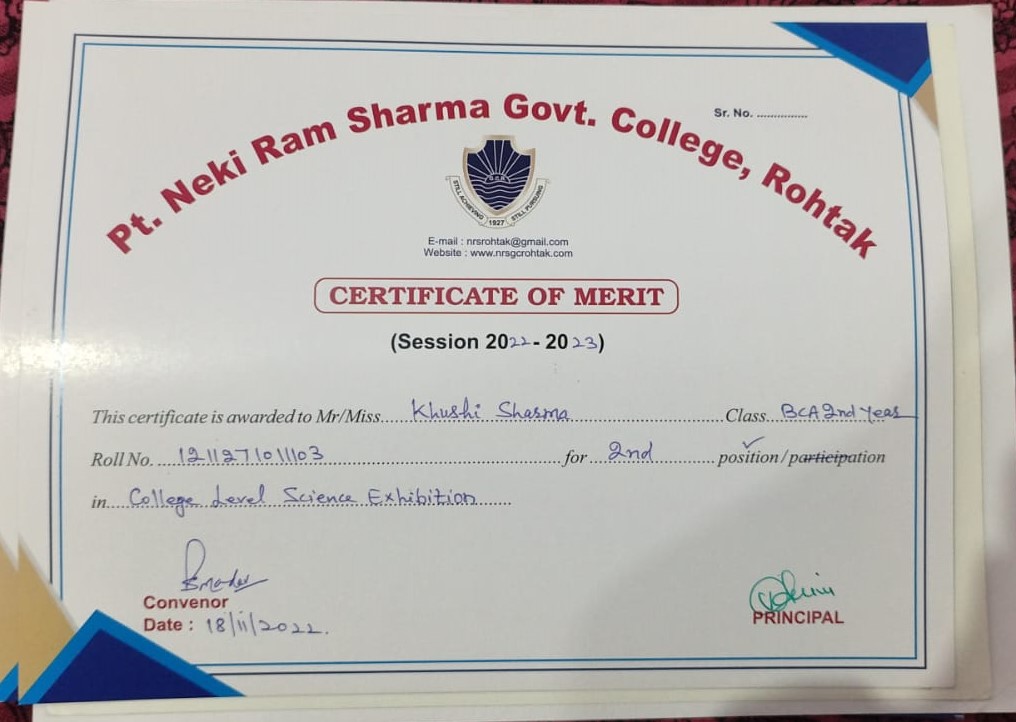 Sr. No. ...............
Pt. Neki Ram Sharma Govt. College, Rohtak
STILL ACHIEVING 1927 STILL PURSUING
E-mail : nrsrohtak@gmail.com
Website : www.nrsgcrohtak.com
CERTIFICATE OF MERIT
(Session 2022 - 2023)
This certificate is awarded to Mr/Miss....Khushi Sharma....Class..BCA 2nd Year
Roll No. ...1211271011103....for...2nd....position/participation
in....College Level Science Exhibition......
Convenor
Date : 18/11/2022.
PRINCIPAL